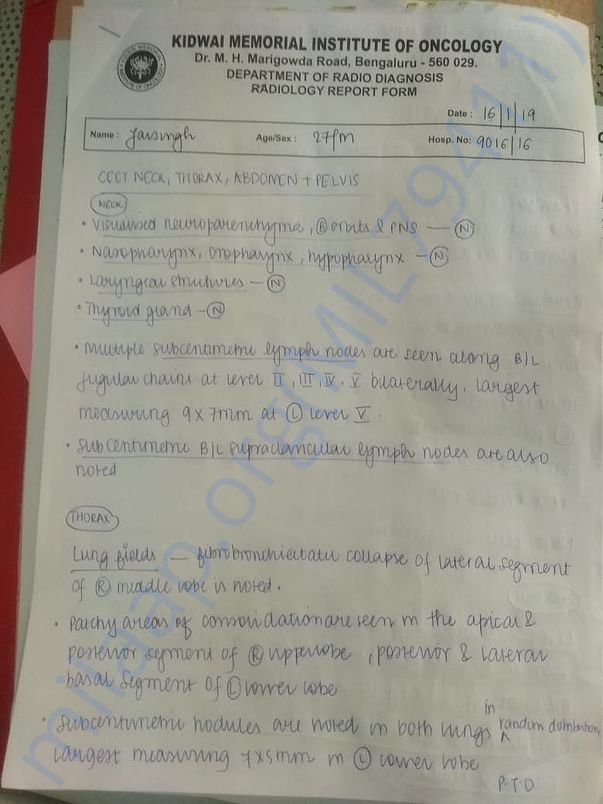 KIDWAI MEMORIAL INSTITUTE OF ONCOLOGY
Dr. M. H. Marigowda Road, Bengaluru - 560 029.
DEPARTMENT OF RADIO DIAGNOSIS
RADIOLOGY REPORT FORM
Date : 16/1/19
Name : Jaisingh Age/Sex : 27/M Hosp. No: 9016/16
CECT NECK, THORAX, ABDOMEN + PELVIS
NECK
• Visualised neuroparenchyma, Ⓑ orbits & PNS — Ⓝ
• Nasopharynx, oropharynx, hypopharynx — Ⓝ
• Laryngeal structures — Ⓝ
• Thyroid gland — Ⓝ
• Multiple subcentimetric lymph nodes are seen along B/L
jugular chains at level II, III, IV, V bilaterally, largest
measuring 9 x 7mm at Ⓛ level V.
• Subcentimetric B/L supraclavicular lymph nodes are also
noted
THORAX
Lung fields — fibrobronchiectatic collapse of lateral segment
of Ⓡ middle lobe is noted.
• Patchy areas of consolidation are seen in the apical &
posterior segment of Ⓡ upper lobe, posterior & lateral
basal segment of Ⓛ lower lobe
• Subcentimetric nodules are noted in both lungs in random distribution,
largest measuring 7x5mm in Ⓛ lower lobe
P.T.O
milaap.org(MIL79411)